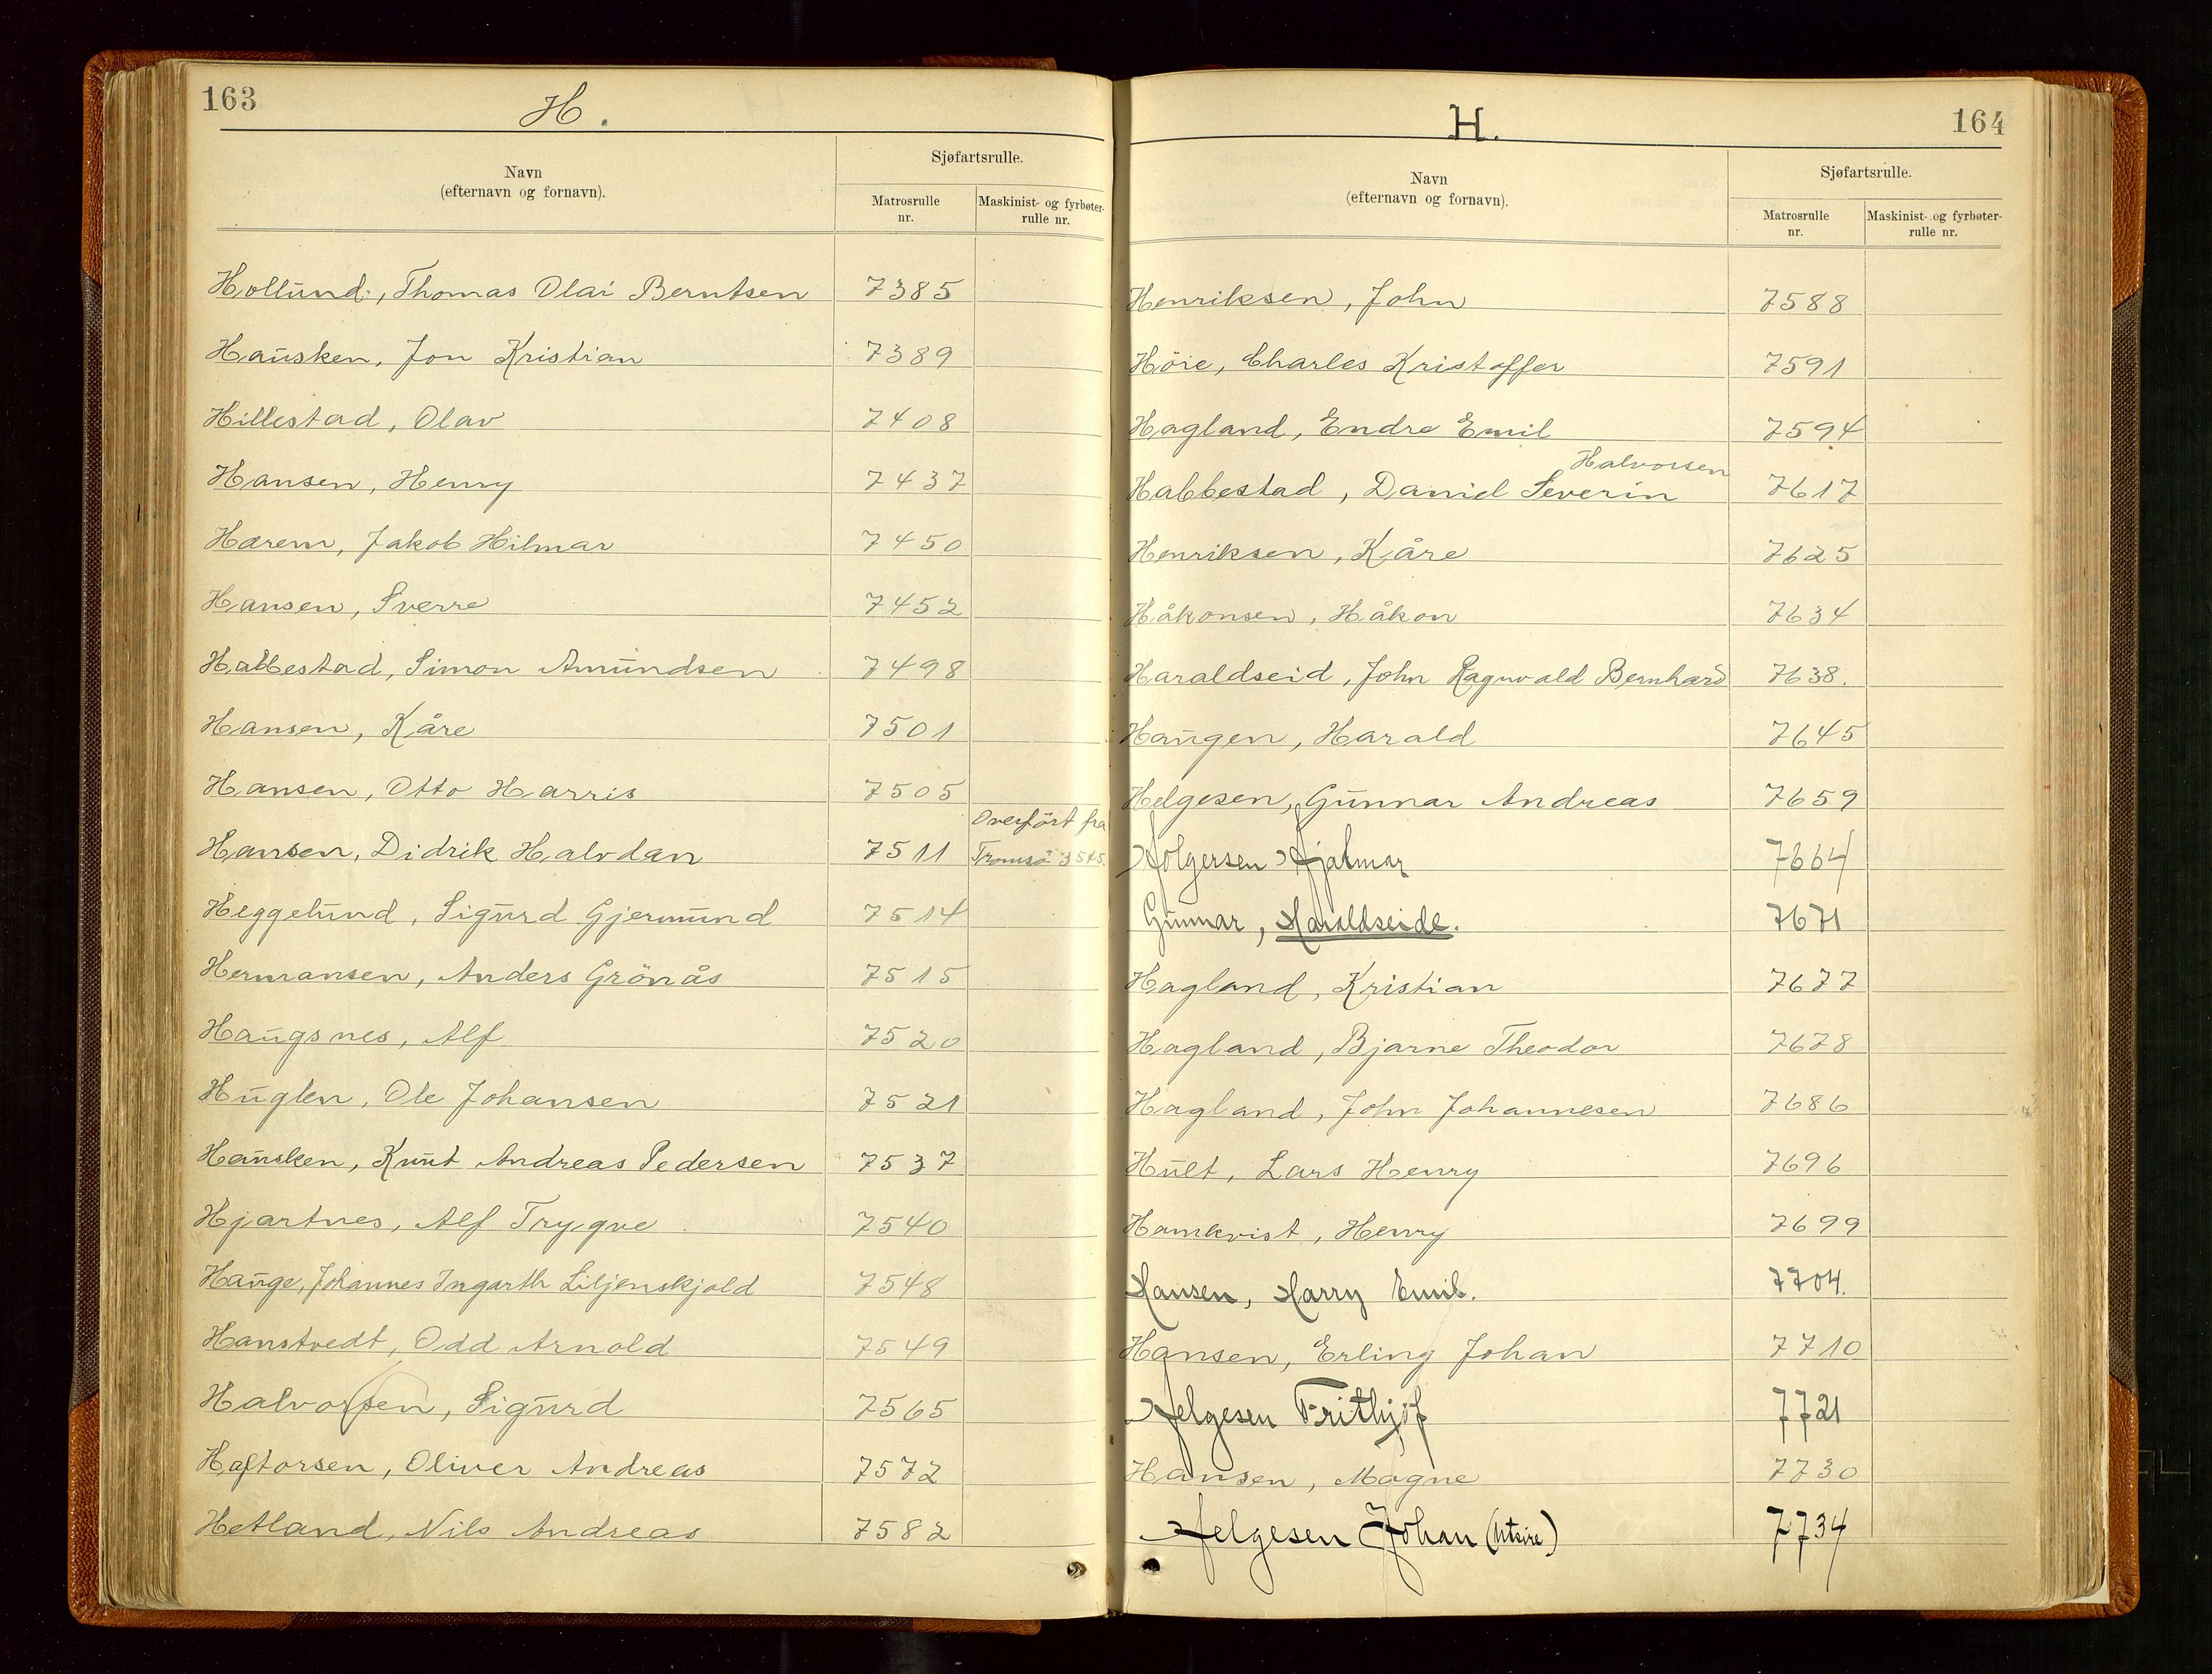 163
H.
Navn
(efternavn og fornavn).
Sjøfartsrulle.
Matrosrulle nr.
Maskinist- og fyrbøter-rulle nr.
Hollund, Thomas Olai Berntsen 7385
Hausken, Jon Kristian 7389
Hillestad, Olav 7408
Hansen, Henry 7437
Hærem, Jakob Hilmar 7450
Hansen, Sverre 7452
Habbestad, Simon Amundsen 7498
Hansen, Kåre 7501
Hansen, Otto Harris 7505
Hansen, Didrik Halvdan 7511 Overført fra Tromsø
Heggelund, Sigurd Gjermund 7514
Hermansen, Anders Grönås 7515
Haugsnes, Alf 7520
Huglen, Ole Johansen 7521
Hausken, Knut Andreas Pedersen 7537
Hjartnes, Alf Trygve 7540
Hauge, Johannes Ingarth Liljenskjold 7548
Hanstvedt, Odd Arnold 7549
Halvorsen, Sigurd 7565
Haftorsen, Oliver Andreas 7572
Hetland, Nils Andreas 7582
164
H.
Navn
(efternavn og fornavn).
Sjøfartsrulle.
Matrosrulle nr.
Maskinist- og fyrbøter-rulle nr.
Henriksen, John 7588
Höie, Charles Kristoffer 7591
Hagland, Endre Emil 7594
Halvorsen
Habbestad, Daniel Severin 7617
Henriksen, Kåre 7625
Håkonsen, Håkon 7634
Haraldseid, John Ragnvald Bernhard 7638.
Haugen, Harald 7645
Helgesen, Gunnar Andreas 7659
Holgersen Hjalmar 7664
Gunnar, Haraldseide. 7671
Hagland, Kristian 7677
Hagland, Bjarne Theodor 7678
Hagland, John Johannesen 7686
Hult, Lars Henry 7696
Hamkvist, Henry 7699
Hansen, Harry Emil. 7704.
Hansen, Erling Johan 7710
Helgesen Frithjof 7721
Hansen, Magne 7730
Helgesen Johan (Utsire) 7734